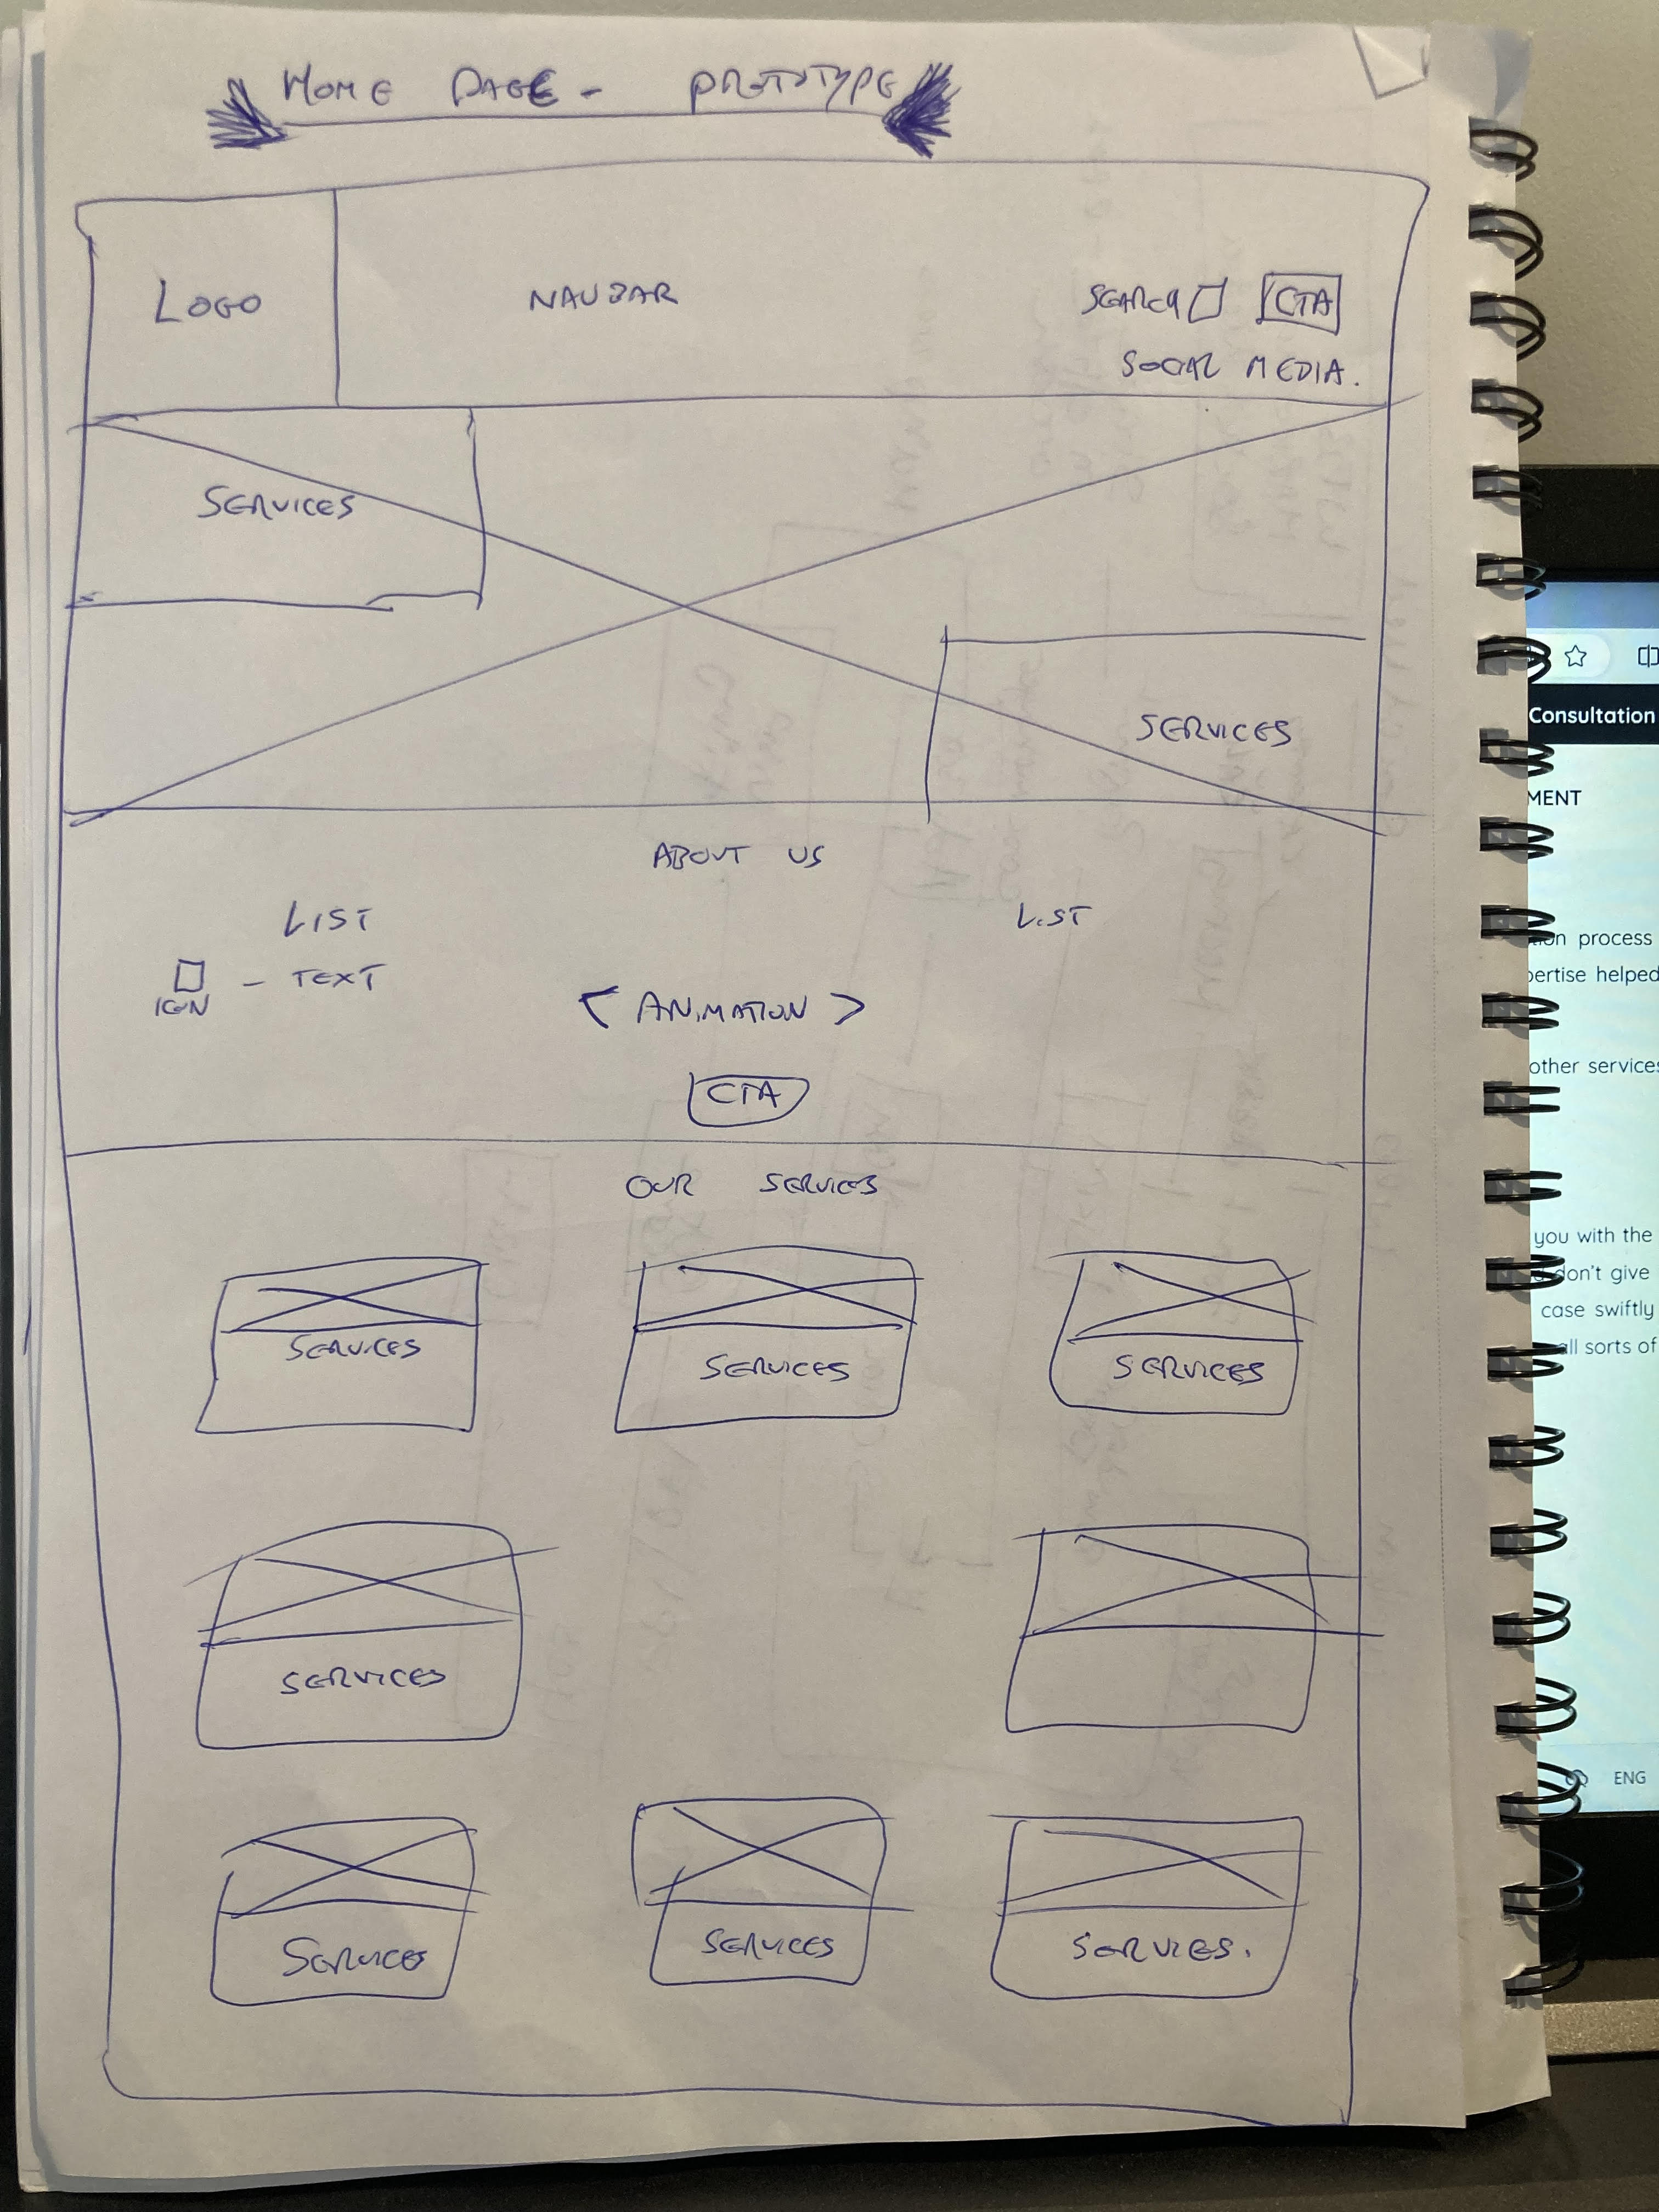 HOME PAGE - PROTOTYPE
LOGO
NAVBAR
SEARCH
CTA
SOCIAL MEDIA.
SERVICES
SERVICES
ABOUT US
LIST
LIST
ICON
- TEXT
< ANIMATION >
CTA
OUR SERVICES
SERVICES
SERVICES
SERVICES
SERVICES
SERVICES
SERVICES
SERVICES.
Consultation
MENT
process
helped
other services
you with the
don't give
case swiftly
all sorts of
ENG